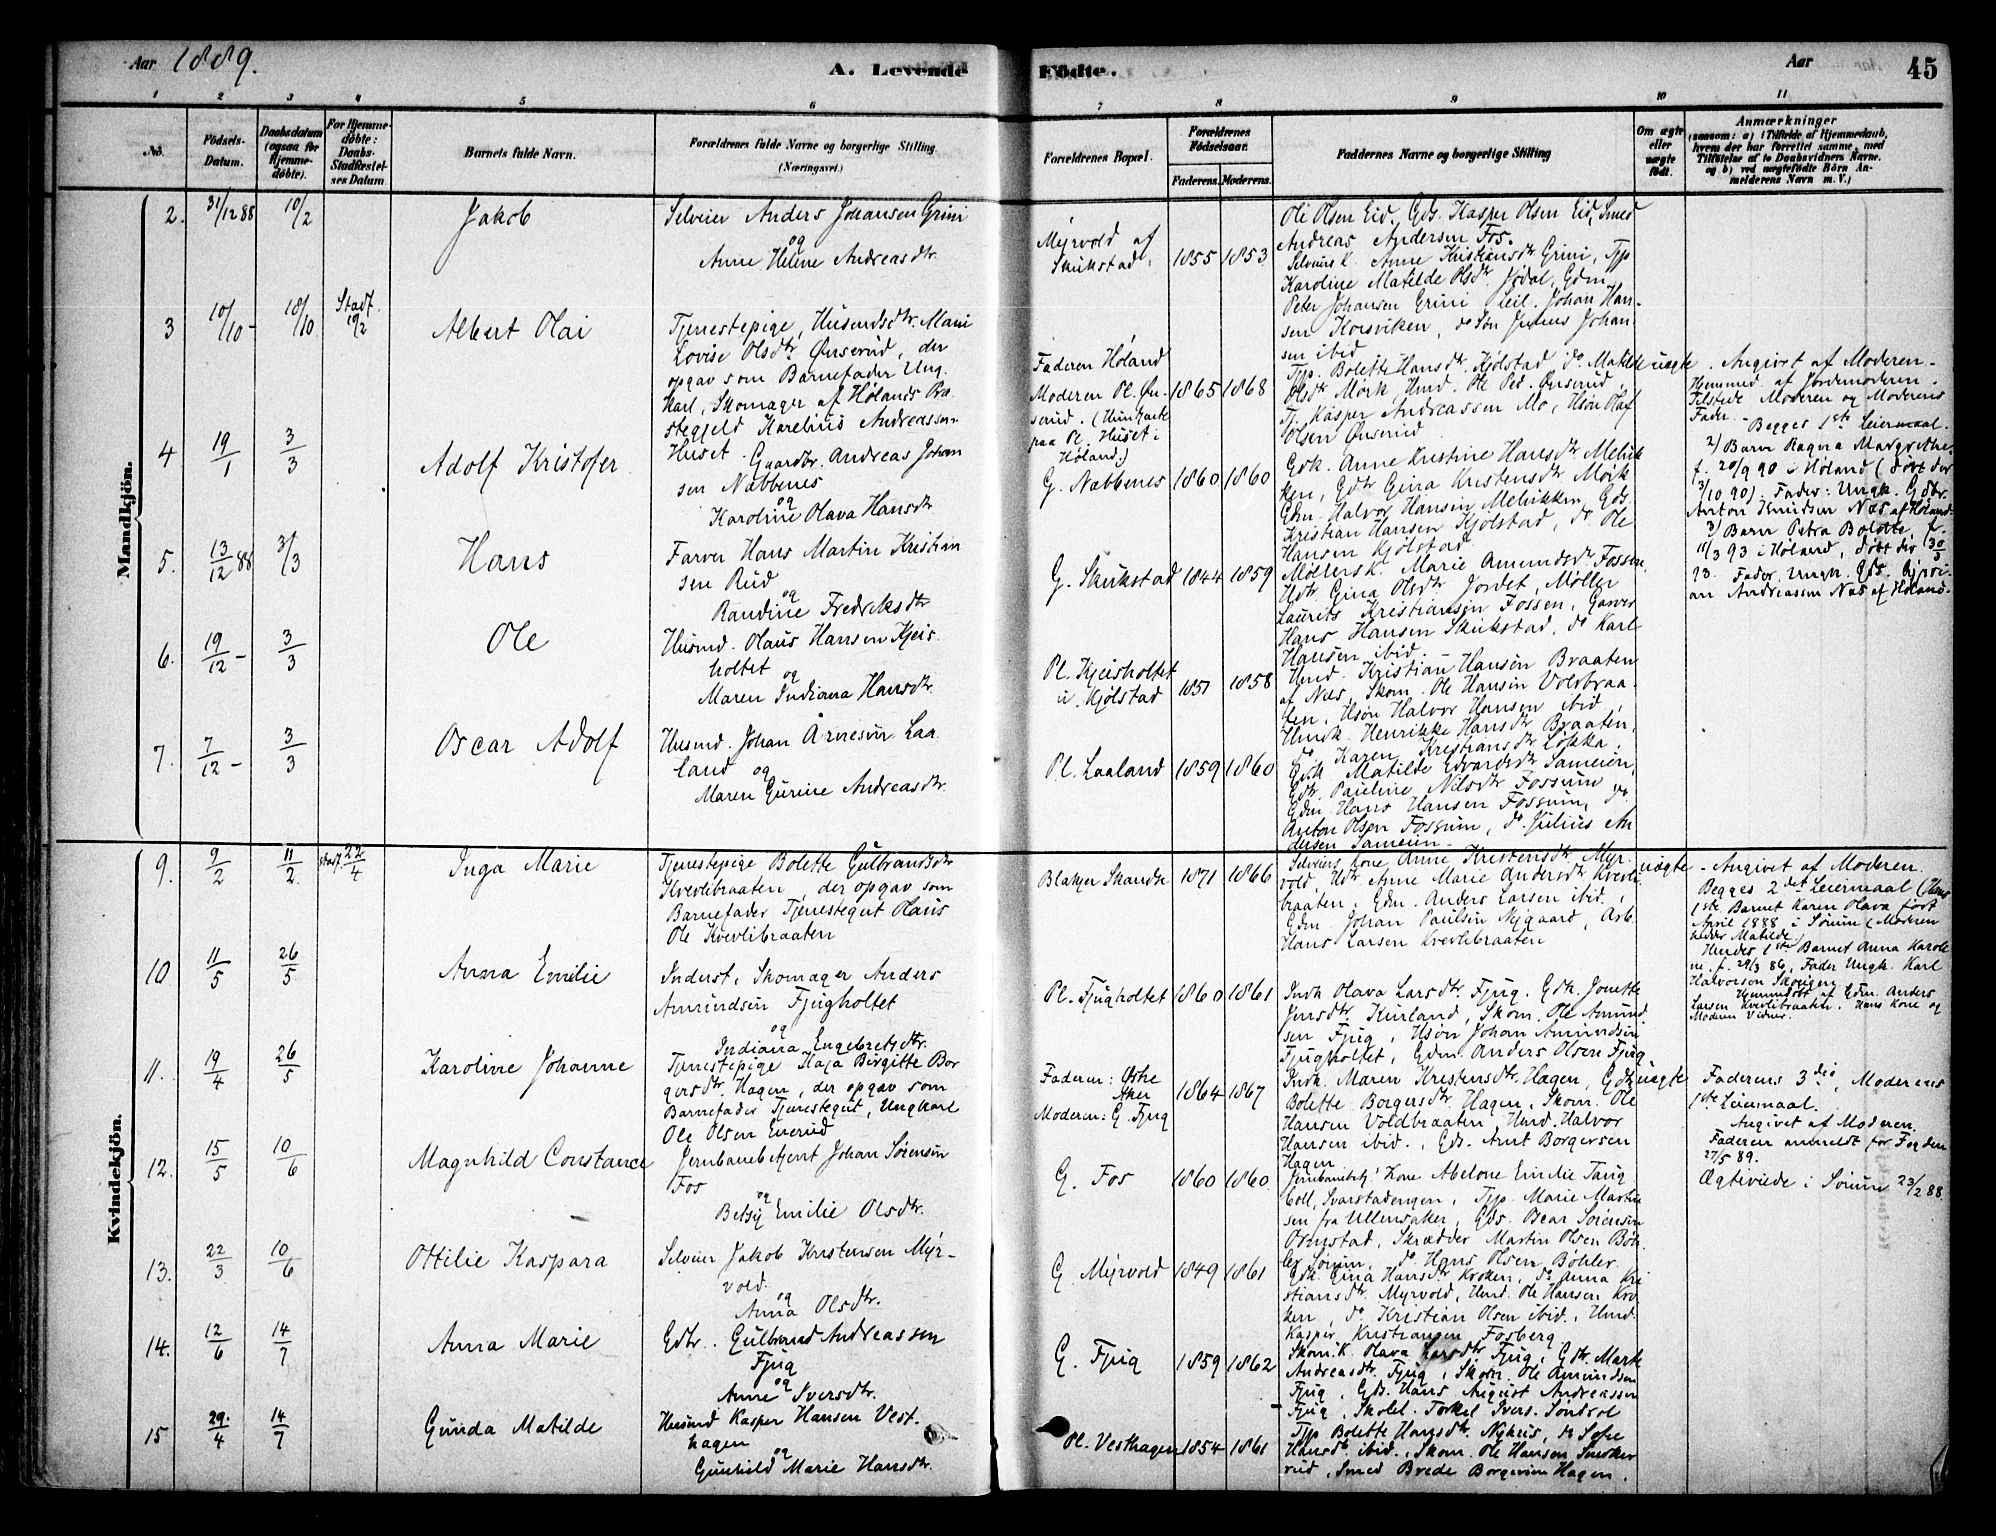 Aar 1889.
A. Levende Födte.
Aar
45
1 2 3 4 5 6 7 8 9 10 11
No.
Födsels-Datum.
Daabsdatum (ogsaa for Hjemme-döbte).
For Hjemme-döbte: Daabs-Stadfæstel-ses Datum
Barnets fulde Navn.
Forældrenes fulde Navne og borgerlige Stilling (Næringsvei.)
Forældrenes Bopæl.
Forældrenes Födselsaar.
Faderens. Moderens.
Faddernes Navne og borgerlige Stilling
Om ægte eller uægte födt.
Anmærkninger
(saasom: a) i Tilfælde af Hjemmedaab,
hvem der har forrettet samme, med
Tilföielse af to Daabsvidners Navne.
og b) ved uægtefödte Börn An-
melderens Navn m. V.)
Mandkjön.
2. 31/12 88 10/2 Jakob
Selveier Anders Johansen Grini
og
Anne Helene Andreasdtr.
Myrvold af
Skukstad.
1855 1853
Ole Olsen Eid, Gds. Kasper Olsen Eid, Smed
Andreas Andersen Fos.
3 10/10 - 18/10 Stadf. 10/2 Albert Olai
Tjenestepige, Husmdsdtr. Mari
Lovise Olsdtr. Ønserud, der
opgav som Barnefader Ung-
karl, Skomager af Hølands Præ-
stegjeld Karelius Andreassen
Huset.
Faderen Høland
Moderen Pl. Øn-
serud. (Hun
paa Pl. Huset i
Høland.)
1865 1868
Selveiers K. Anne Kristiansdtr. Grini, Tjp
Karoline Matilde Olsdtr. Jødal, Gdm.
Peter Johansen Grini Leil. Johan Han-
sen Korsviken, do Søn Julius Johan
sen ibid
Tjp. Bolette Hansdtr. Kjølstad do Matilde
Olsdtr. Mørk, Hmd. Ole Ped. Ønserud,
Tj. Kasper Andreassen Mo, Hsøn Olaf
Olsen Ønserud
uægte
. Angivet af Moderen -
Hjemmed. af Jordemoderen.
Tilstede Moderen og Moderens
Fader.
- Begges 1ste Leiermaal.
2) Barn Ragna Margrethe
f. 20/9 90 i Høland (døbt der
3/10 90). Fader: Ungk. Gdbr.
Anton Knudsen Næs af Høland-
3) Barn Petra Bolette, f.
11/3 93 i Høland, døbt der 30/5
93. Fader, Ungk. Gds.
an Andreassen Næs af Høland.
4 19/1 3/3 Adolf Kristofer
Gaardbr. Andreas Johan
sen Næbbenes
og
Karoline Olava Hansdtr
G. Næbbenes
1860 1860
Gdk. Anne Kristine Hansdtr Melnik
ken, Gdtr Gina Kristensdtr. Mørk
Gdm. Halvor Hansen Melnikken, Gds.
Kristian Hansen Kjølstad, do Ole
Hansen Kjølstad
5. 13/12 88 3/3 Hans
Farver Hans Martin Kristian
sen Rud
og
Randine Fredriksdtr
G. Skukstad
1844 1859
Møllersk. Marie Amundsdtr. Fossen,
Hdtr. Gina Olsdtr. Jordet, Møller
Laurits Kristiansen Fossen, Garver
Hans Hansen Skukstad, do Karl
Hansen ibid.
6. 19/12 - 3/3 Ole
Husmd. Olaus Hansen Kjeis
holtet
og
Maren Indiana Hansdtr.
Pl. Kjeisholtet
u. Kjølstad
1851 1858
Hmd. Kristian Hansen Braaten
af Næs, Skom. Ole Hansen Voldbraa-
ten, Hsøn Halvor Hansen ibid,
Hmdk. Henrikke Hansdtr. Braaten,
do Karen Kristiansdtr. Løkka.
7. 7/12 - 3/3 Oscar Adolf
Husmd. Johan Arnesen Laa
land
og
Maren Gurine Andreasdtr.
Pl. Laaland
1859 1860
Gdk Matilde Edvardsdtr Sameien,
Gdtr. Pauline Nilsdtr. Fossum
Gdm. Hans Hansen Fossum,
Anton Olsen Fossum, do. Julius An
dersen Sameien
Kvindekjön.
9. 9/2 11/2 Stadf. 22/4 Inga Marie
Tjenestepige Bolette Gulbrandsdtr
Kvevlibraaten, der opgav som
Barnefader Tjenestegut Olaus
Ole Kvevlibraaten
Blakjer Skandse
1871 1866
Selveiers Kone Anne Kristensdtr. Myr-
vold, Hdtr. Anne Marie Andersdtr. Kvevli
braaten, Gdm. Anders Larsen ibid.,
Gdm. Johan Paulsen Nygaard, Arb.
Hans Larsen Kvevlibraaten
uægte
- Angivet af Moderen.
Begges 2det Leiermaal (Hans
1ste Barnet Karen Olava født
April 1888 i Sørum (Moderen
hedder Matilde.)
Hendes 1ste Barnet Anna Karoli
ne, f. 29/3 86, Fader Ungk. Karl
Halvorsen
Hjemmedøbt af Gdm. Anders
Larsen Kvevlibraaten. Hans Kone og
Moderen Vidner.
10 11/5 26/5 Anna Emilie
Inderst, Skomager Anders
Amundsen Fjugholtet
og
Indiana Engebretsdtr.
Pl. Fjugholtet
1860 1861
Indk Olava Larsdtr. Fjug. Gdk. Jonette
Jensdtr. Kurland, Skom. Ole Amund
sen Fjug, Hsøn Johan Amundsen
Fjugholtet, Gdm. Anders Olsen Fjug.
11. 19/4 26/5 Karoline Johanne
Tjenestepige Kaja Birgitte Bor
gersdtr. Hagen, der opgav som
Barnefader Tjenestegut, Ungkarl
Ole Olsen Enerud
Faderen: Østre
Aker
Moderen: G. Fjug
1864 1867
Indk. Maren Kristensdtr. Hagen, Gdtr
Bolette Borgersdtr. Hagen, Skom. Ole
Hansen Voldbraaten, Hmd. Halvor
Hansen ibid., Gds. Arnt Borgersen
Hagen
uægte
Faderens 3die, Moderens
1ste Leiermaal.
Angivet af Moderen.
Faderen anmeldt for Fogden
27/5 89.
12. 15/5 10/6 Magnhild Constance
Jernbanebetjent Johan Sørensen
Fos
og
Betsy Emilie Olsdtr.
G. Fos
1860 1860
Jernbanebetj. Kone Abelone Emilie Taug
böll, Svarstadengen, Tjp. Marie Martin
sen fra Ullensaker, Gds. Oscar Sørensen
Ormstad, Skrædder Martin Olsen Bøh
ler Sørum, do. Hans Olsen Bøhler
Ægteviede i Sørum 23/2 88.
13. 22/3 10/6 Ottilie Kaspara
Selveier Jakob Kristensen Myr-
vold.
og
Anna Olsdtr.
G. Myrvold
1849 1861
Gdk. Gina Hansdtr Kroken, do Anna Kri
stiansdtr. Myrvold, Hmd. Ole Hansen Kro
ken, do Kristian Olsen ibid., Hmd.
Kasper Kristiansen Fosberg
14. 12/6 14/7 Anna Marie
Gdbr. Gulbrand Andreassen
Fjug
og
Anne Iversdtr.
G. Fjug
1859 1862
Skom. K. Olava Larsdtr Fjug, Gdtr. Marte
Andreasdtr. Fjug, Skom. Ole Amundsen
Fjug, Gds. Hans August Andreassen
Fjug, Skolel. Torkel Ivers. Sondsol
15 29/4 14/7 Gunda Matilde
Husmd Kasper Hansen Vest-
hagen
og
Gunhild Marie Hansdtr.
Pl. Vesthagen
1854 1861
Tjp Bolette Hansdtr. Nyhus, do Sofie
Hansdtr ibid., Skom. Ole Hansen
rud, Smed Brede Borgersen Hagen.